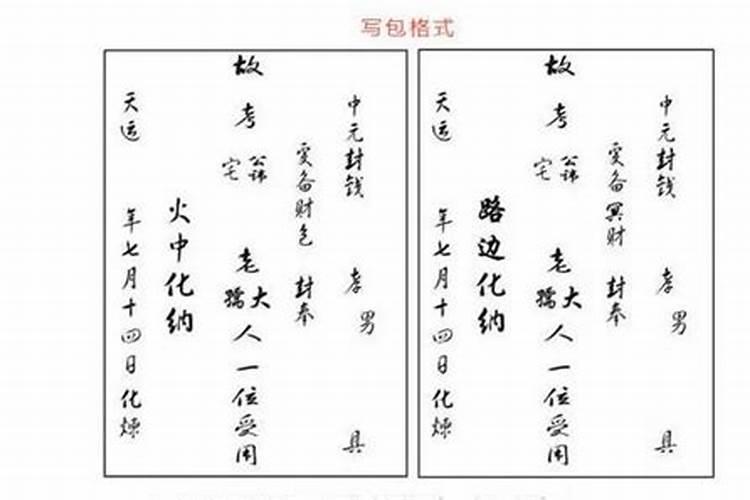 写包格式
中元封钱 孝男 具
爰备财包 封奉
故考 公讳 宅 老 大 孺 人一位受用
火中化纳
天运 年七月十四日化炼
中元封钱 孝男 具
爰备冥财 封奉
故考 公讳 宅 老 大 孺 人一位受用
路边化纳
天运 年七月十四日化炼